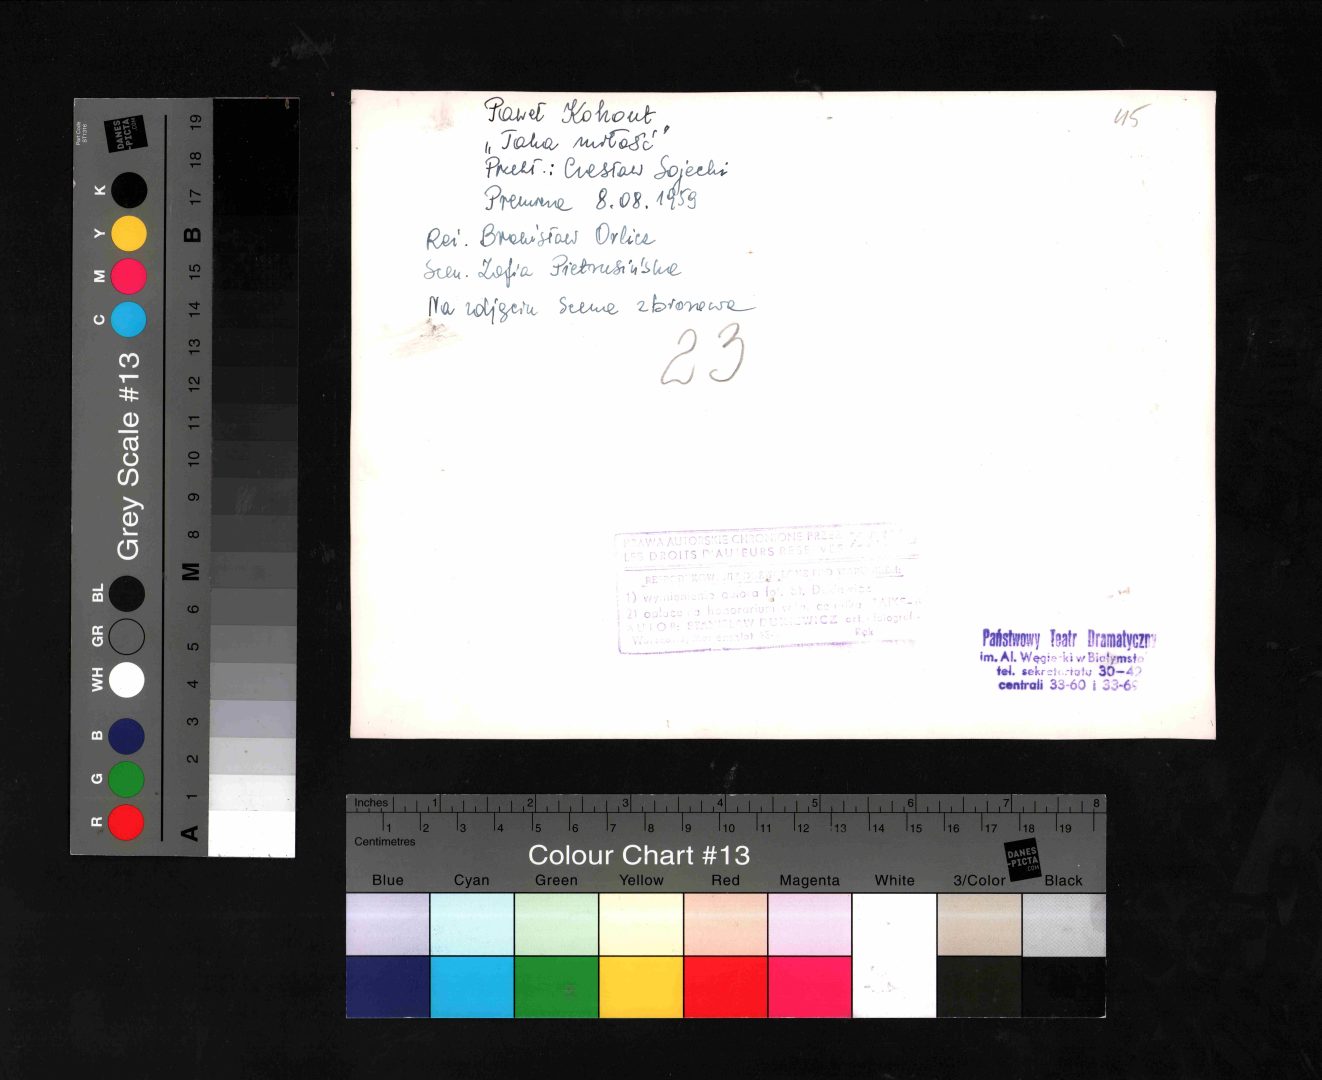 Paweł Kohout
„Taka miłość”
Przekł.: Czesław Sojecki
Premiera 8.08.1959
Reż. Bronisław Orlicz
Scen. Zofia Pietrusińska
Na zdjęciu scena zbiorowa
23
45
PRAWA AUTORSKIE CHRONIONE PRZEZ
LES DROITS D'AUTEURS RESERVES
1) wymienienia autora fot. St.
2) opłacenia honorarium
AUTOR: STANISŁAW art. fotograf
Warszawa,
Państwowy Teatr Dramatyczny
im. Al. Węgierki w Białymstoku
tel. sekretariatu 30-42
centrali 33-60 i 33-69
Part Code
DANES
-PICTA
.COM
Grey Scale #13
R G B WH GR BL C M Y K
A 1 2 3 4 5 6 M 8 9 10 11 12 13 14 15 B 17 18 19
Inches 1 2 3 4 5 6 7 8
1 2 3 4 5 6 7 8 9 10 11 12 13 14 15 16 17 18 19
Centimetres
Colour Chart #13
DANES
-PICTA
.COM
Blue Cyan Green Yellow Red Magenta White 3/Color Black